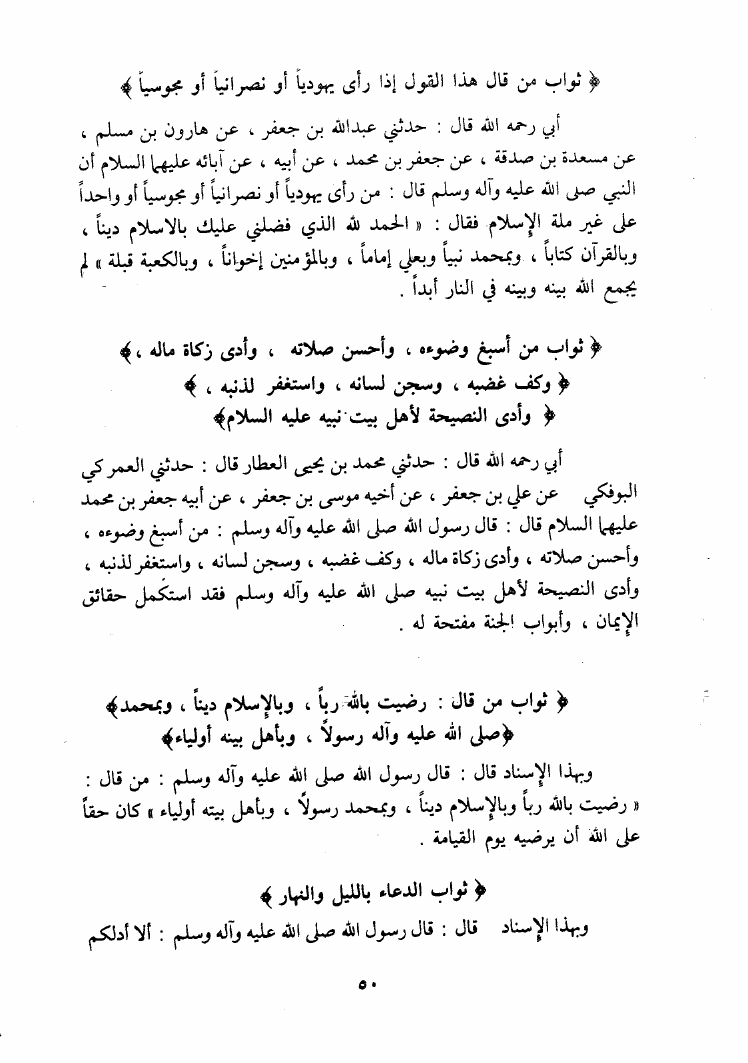 ﴿ ثواب من قال هذا القول إذا رأى يهودياً أو نصرانياً أو مجوسياً ﴾
أبي رحمه الله قال : حدثني عبدالله بن جعفر ، عن هارون بن مسلم ،
عن مسعدة بن صدقة ، عن جعفر بن محمد ، عن أبيه ، عن آبائه عليهما السلام أن
النبي صلى الله عليه وآله وسلم قال : من رأى يهودياً أو نصرانياً أو مجوسياً أو واحداً
على غير ملة الإسلام فقال : « الحمد لله الذي فضلني عليك بالاسلام ديناً ،
وبالقرآن كتاباً ، وبمحمد نبياً وبعلي إماماً ، وبالمؤمنين إخواناً ، وبالكعبة قبلة » لم
يجمع الله بينه وبينه في النار أبداً .
﴿ ثواب من أسبغ وضوءه ، وأحسن صلاته ، وأدى زكاة ماله ، ﴾
﴿ وكف غضبه ، وسجن لسانه ، واستغفر لذنبه ، ﴾
﴿ وأدى النصيحة لأهل بيت نبيه عليه السلام﴾
أبي رحمه الله قال : حدثني محمد بن يحيى العطار قال : حدثني العمركي
البوفكي عن علي بن جعفر ، عن أخيه موسى بن جعفر ، عن أبيه جعفر بن محمد
عليهما السلام قال : قال رسول الله صلى الله عليه وآله وسلم : من أسبغ وضوءه ،
وأحسن صلاته ، وأدى زكاة ماله ، وكف غضبه ، وسجن لسانه ، واستغفر لذنبه ،
وأدى النصيحة لأهل بيت نبيه صلى الله عليه وآله وسلم فقد استكمل حقائق
الإيمان ، وأبواب الجنة مفتحة له .
﴿ ثواب من قال : رضيت بالله رباً ، وبالإسلام ديناً ، وبمحمد﴾
﴿صلى الله عليه وآله رسولاً ، وبأهل بيته أولياء﴾
وبهذا الإسناد قال : قال رسول الله صلى الله عليه وآله وسلم : من قال :
« رضيت بالله رباً وبالإسلام ديناً ، وبمحمد رسولاً ، وبأهل بيته أولياء » كان حقاً
على الله أن يرضيه يوم القيامة .
﴿ ثواب الدعاء بالليل والنهار ﴾
وبهذا الإسناد قال : قال رسول الله صلى الله عليه وآله وسلم : ألا أدلكم
٥٠